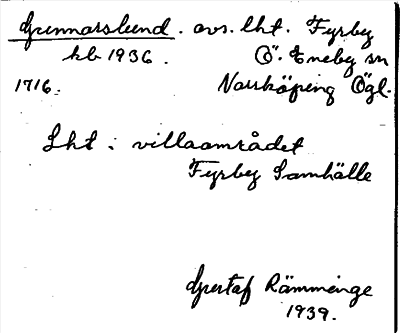 Gunnarslund. avs. lht. Fyrby
kb 1936. Ö. Eneby sn
1716. Norrköping Ögl.
Lht i villaområdet
Fyrby Samhälle
Gustaf Rämminge
1939.